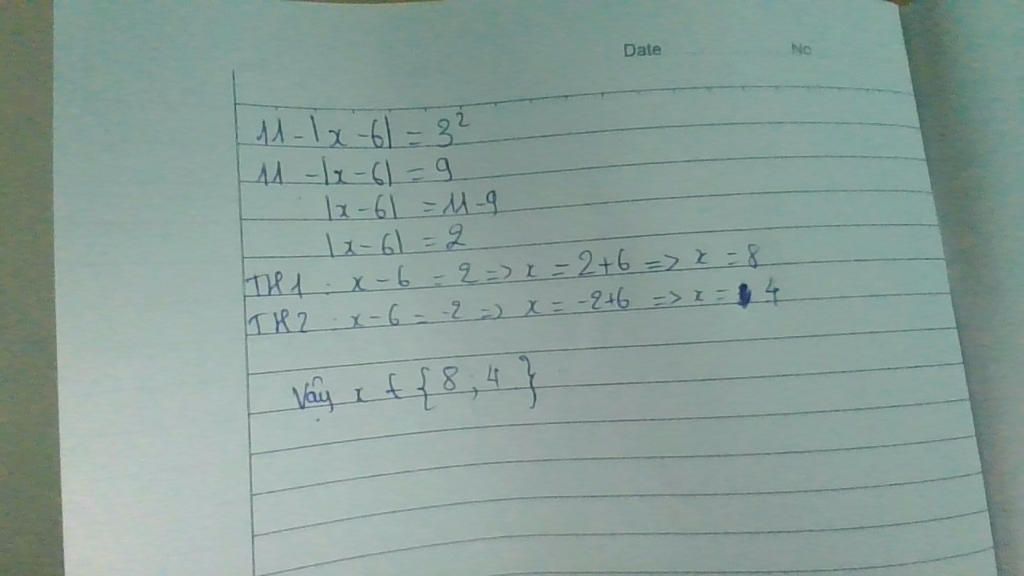 Date No
11 - |x - 6| = 3²
11 - |x - 6| = 9
|x - 6| = 11 - 9
|x - 6| = 2
TH1 : x - 6 = 2 => x = 2 + 6 => x = 8
TH2 : x - 6 = -2 => x = -2 + 6 => x = 4
Vậy x ∈ { 8 ; 4 }